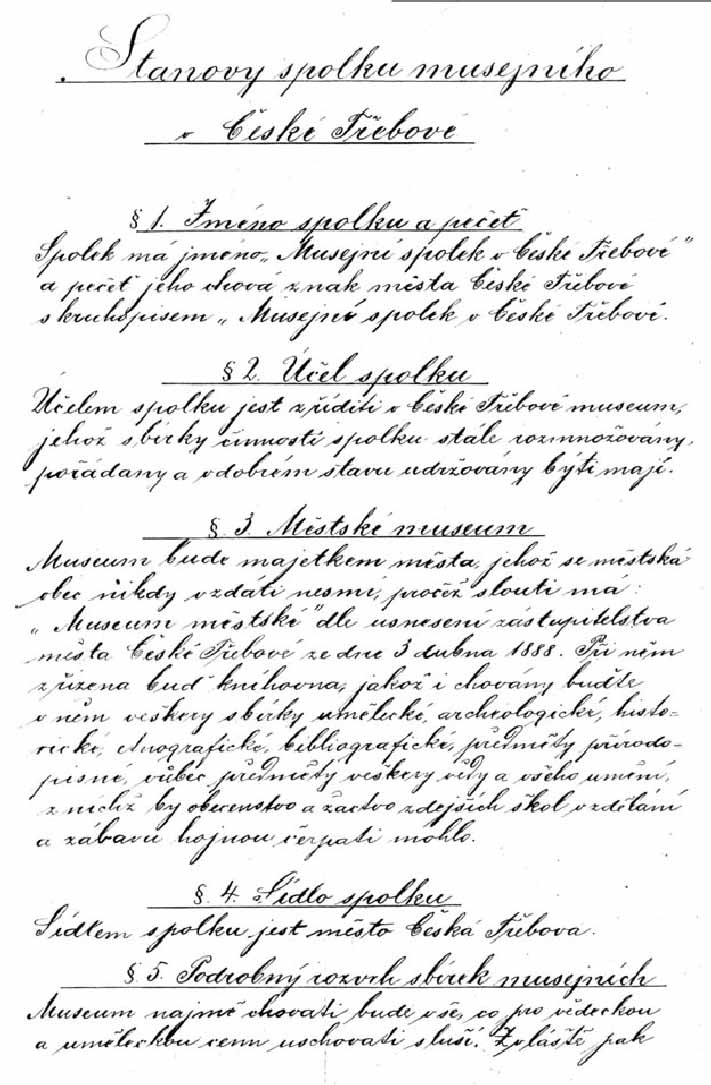 Stanovy spolku musejního
v České Třebové
§ 1. Jméno spolku a pečeť
Spolek má jméno „Musejní spolek v České Třebové"
a pečeť jeho chová znak města České Třebové
s kruhopisem „Musejní spolek v České Třebové.
§ 2. Účel spolku
Účelem spolku jest zříditi v České Třebové museum,
jehož sbírky činností spolku stále rozmnožovány,
pořádany a v dobrém stavu udržovány býti mají.
§ 3. Městské museum
Museum bude majetkem města, jehož se městská
obec nikdy vzdáti nesmí, pročež slouti má:
„Museum městské" dle usnesení zastupitelstva
města České Třebové ze dne 3 dubna 1888. Při něm
zřízena buď knihovna, jakož i chovány buďte
v něm veškery sbírky umělecké, archeologické, histo-
rické, etnografické, bibliografické, předměty přírodo-
pisné, vůbec předměty veškery vědy a všeho umění,
z nichž by obecenstvo a žactvo zdejších škol vzdělání
a zábavu hojnou čerpati mohlo.
§. 4. Sídlo spolku
Sídlem spolku jest město Česká Třebova.
§ 5. Podrobný rozvrh sbírek musejních
Museum najmě chovati bude vše, co pro vědeckou
a uměleckou cenu uschovati sluší. Zvláště pak